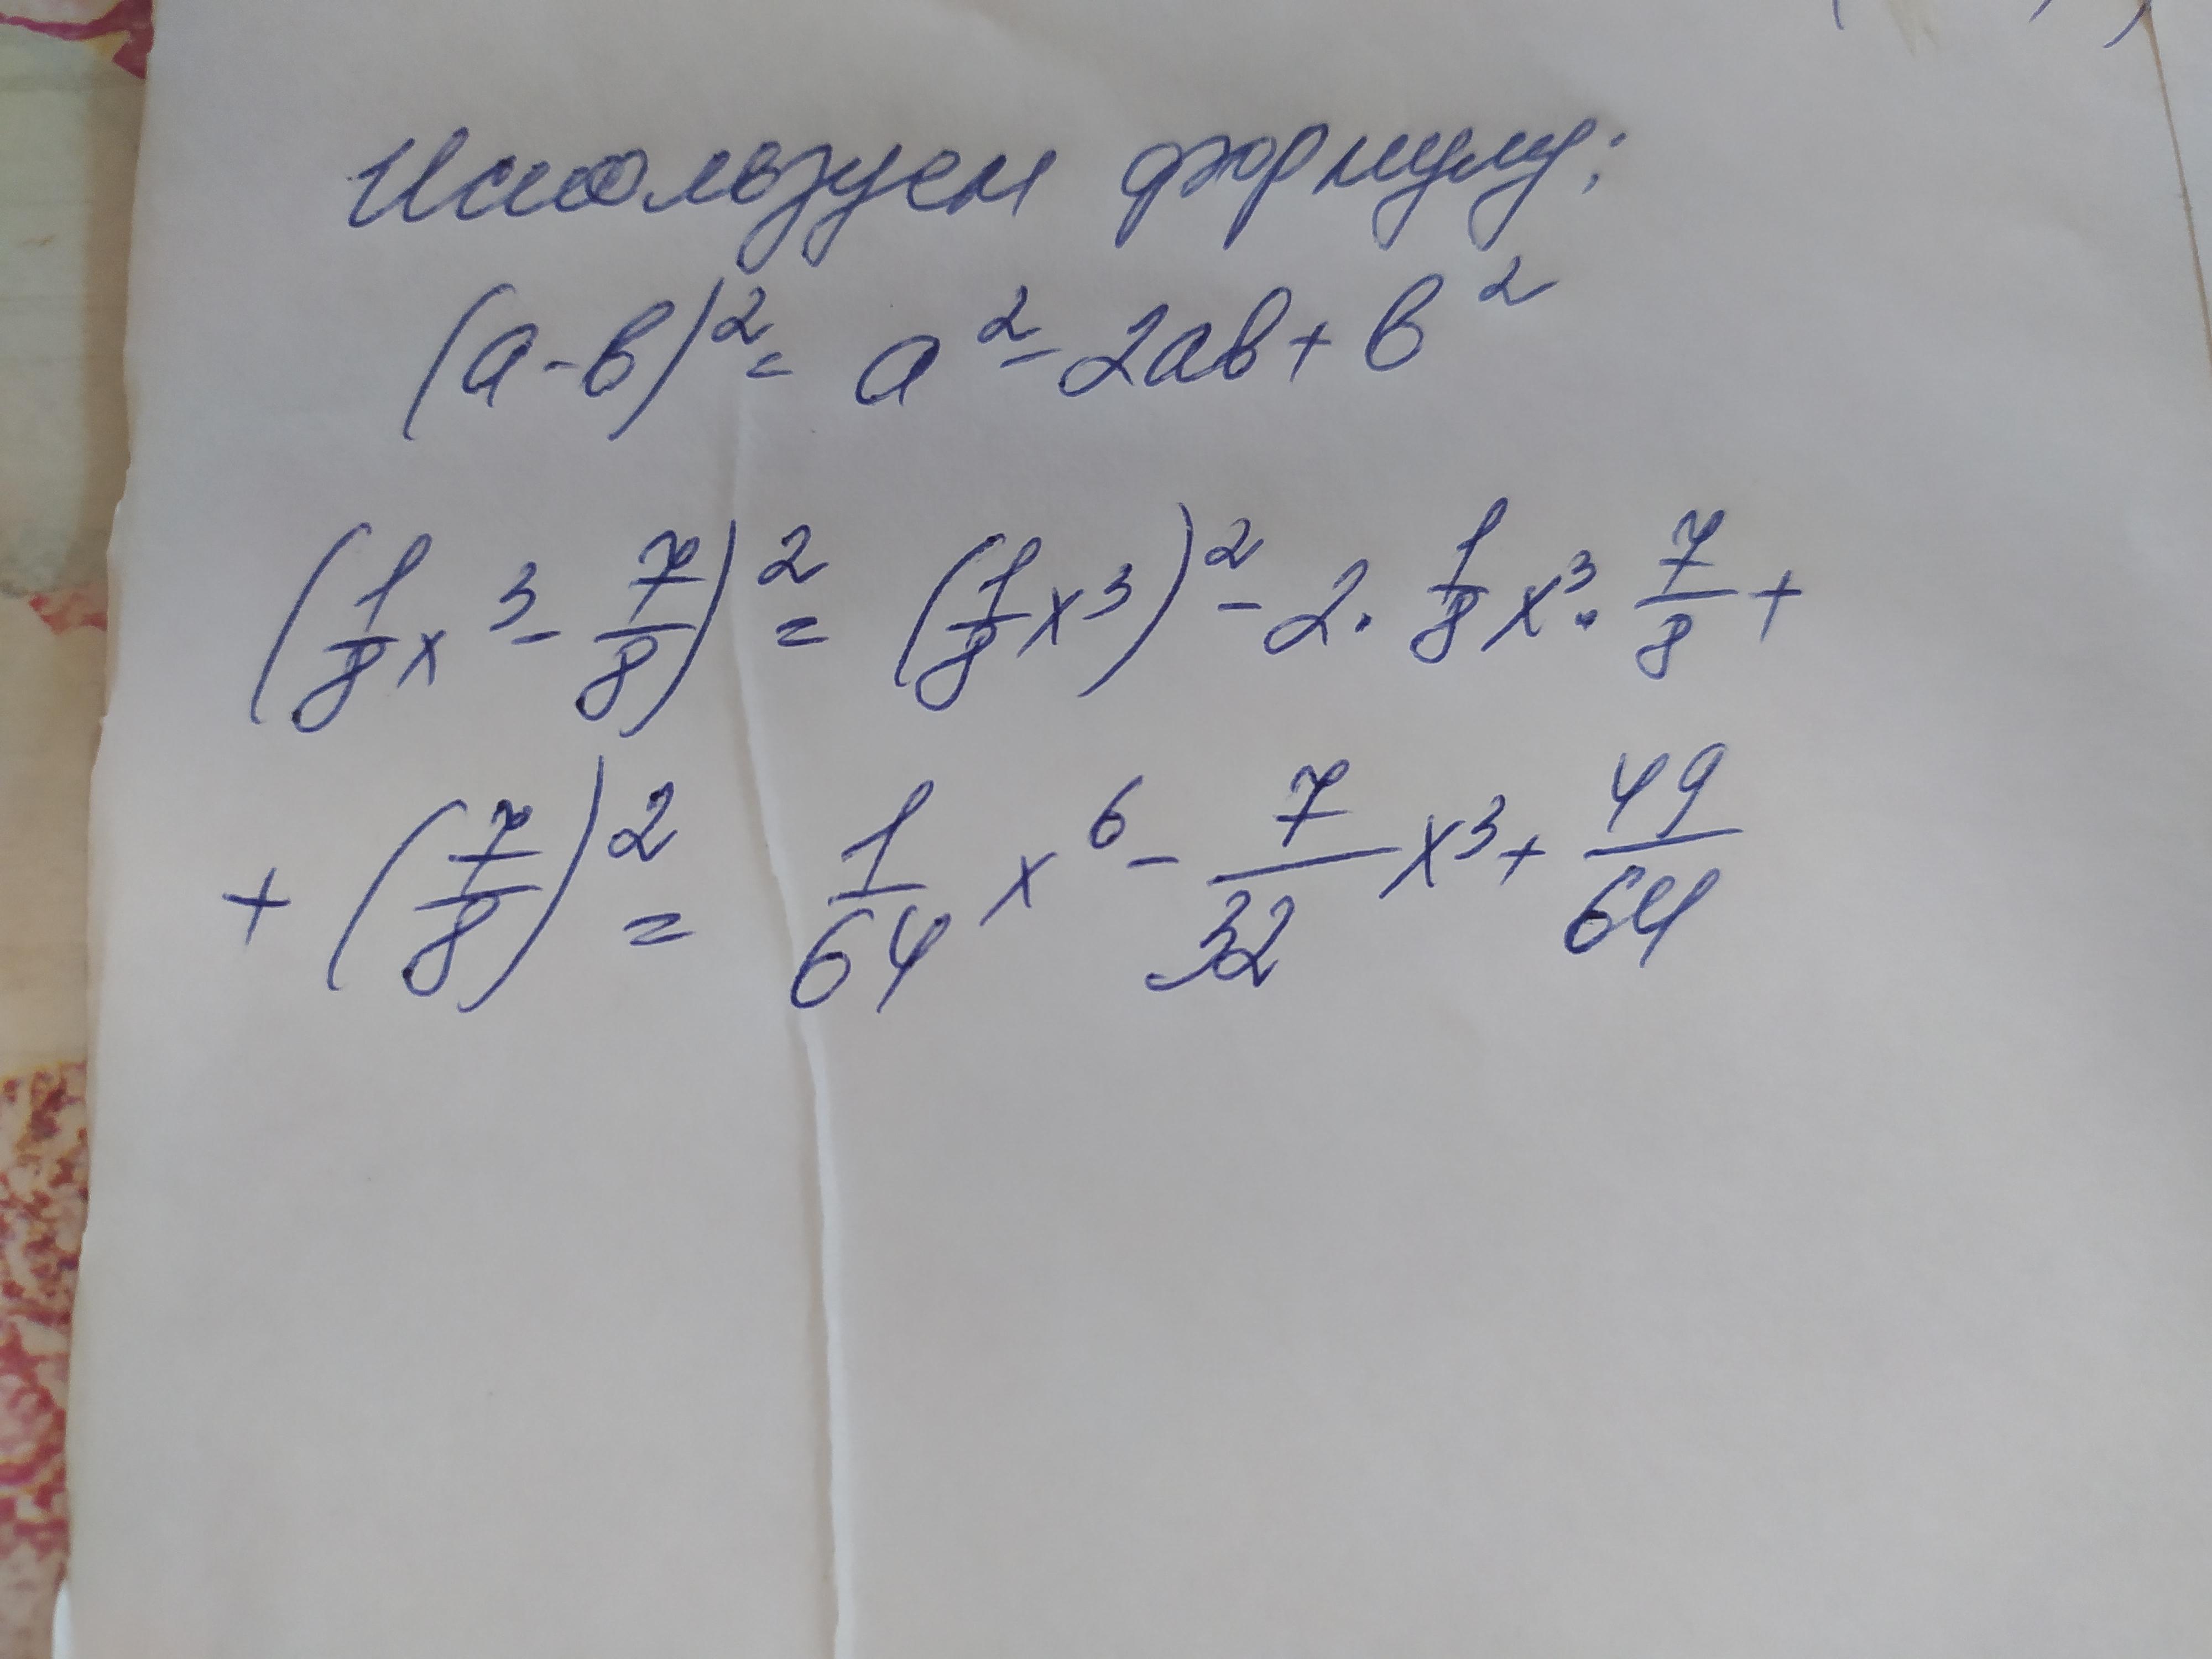 Используем формулу:
(a-в)² = a² - 2aв + в²
(1/8 x³ - 7/8)² = (1/8 x³)² - 2 · 1/8 x³ · 7/8 +
+ (7/8)² = 1/64 x⁶ - 7/32 x³ + 49/64